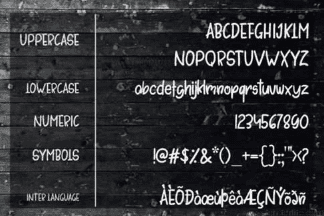 UPPERCASE
ABCDEFGHIJKLM
NOPQRSTUVWXYZ
LOWERCASE
abcdefghijklmnopqrstuvwxyz
NUMERIC
1234567890
SYMBOLS
!@#$%&*()_+={}:;'"><?
INTER LANGUAGE
ÀËÕÐàœùÞêòÆÇÑÝõàñ